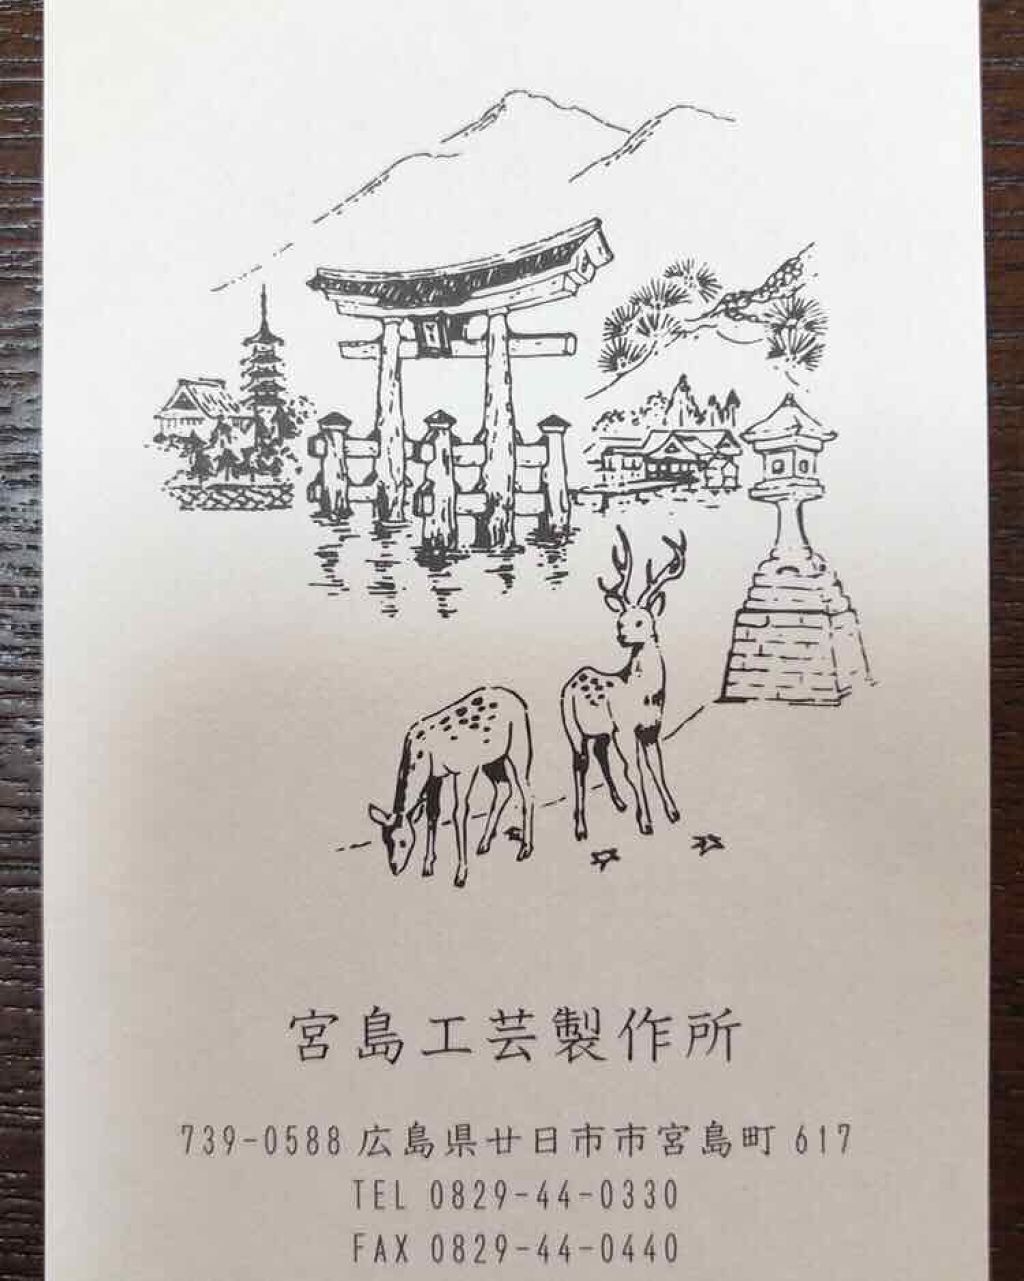 宮島工芸製作所
739-0588 広島県廿日市市宮島町 617
TEL 0829-44-0330
FAX 0829-44-0440